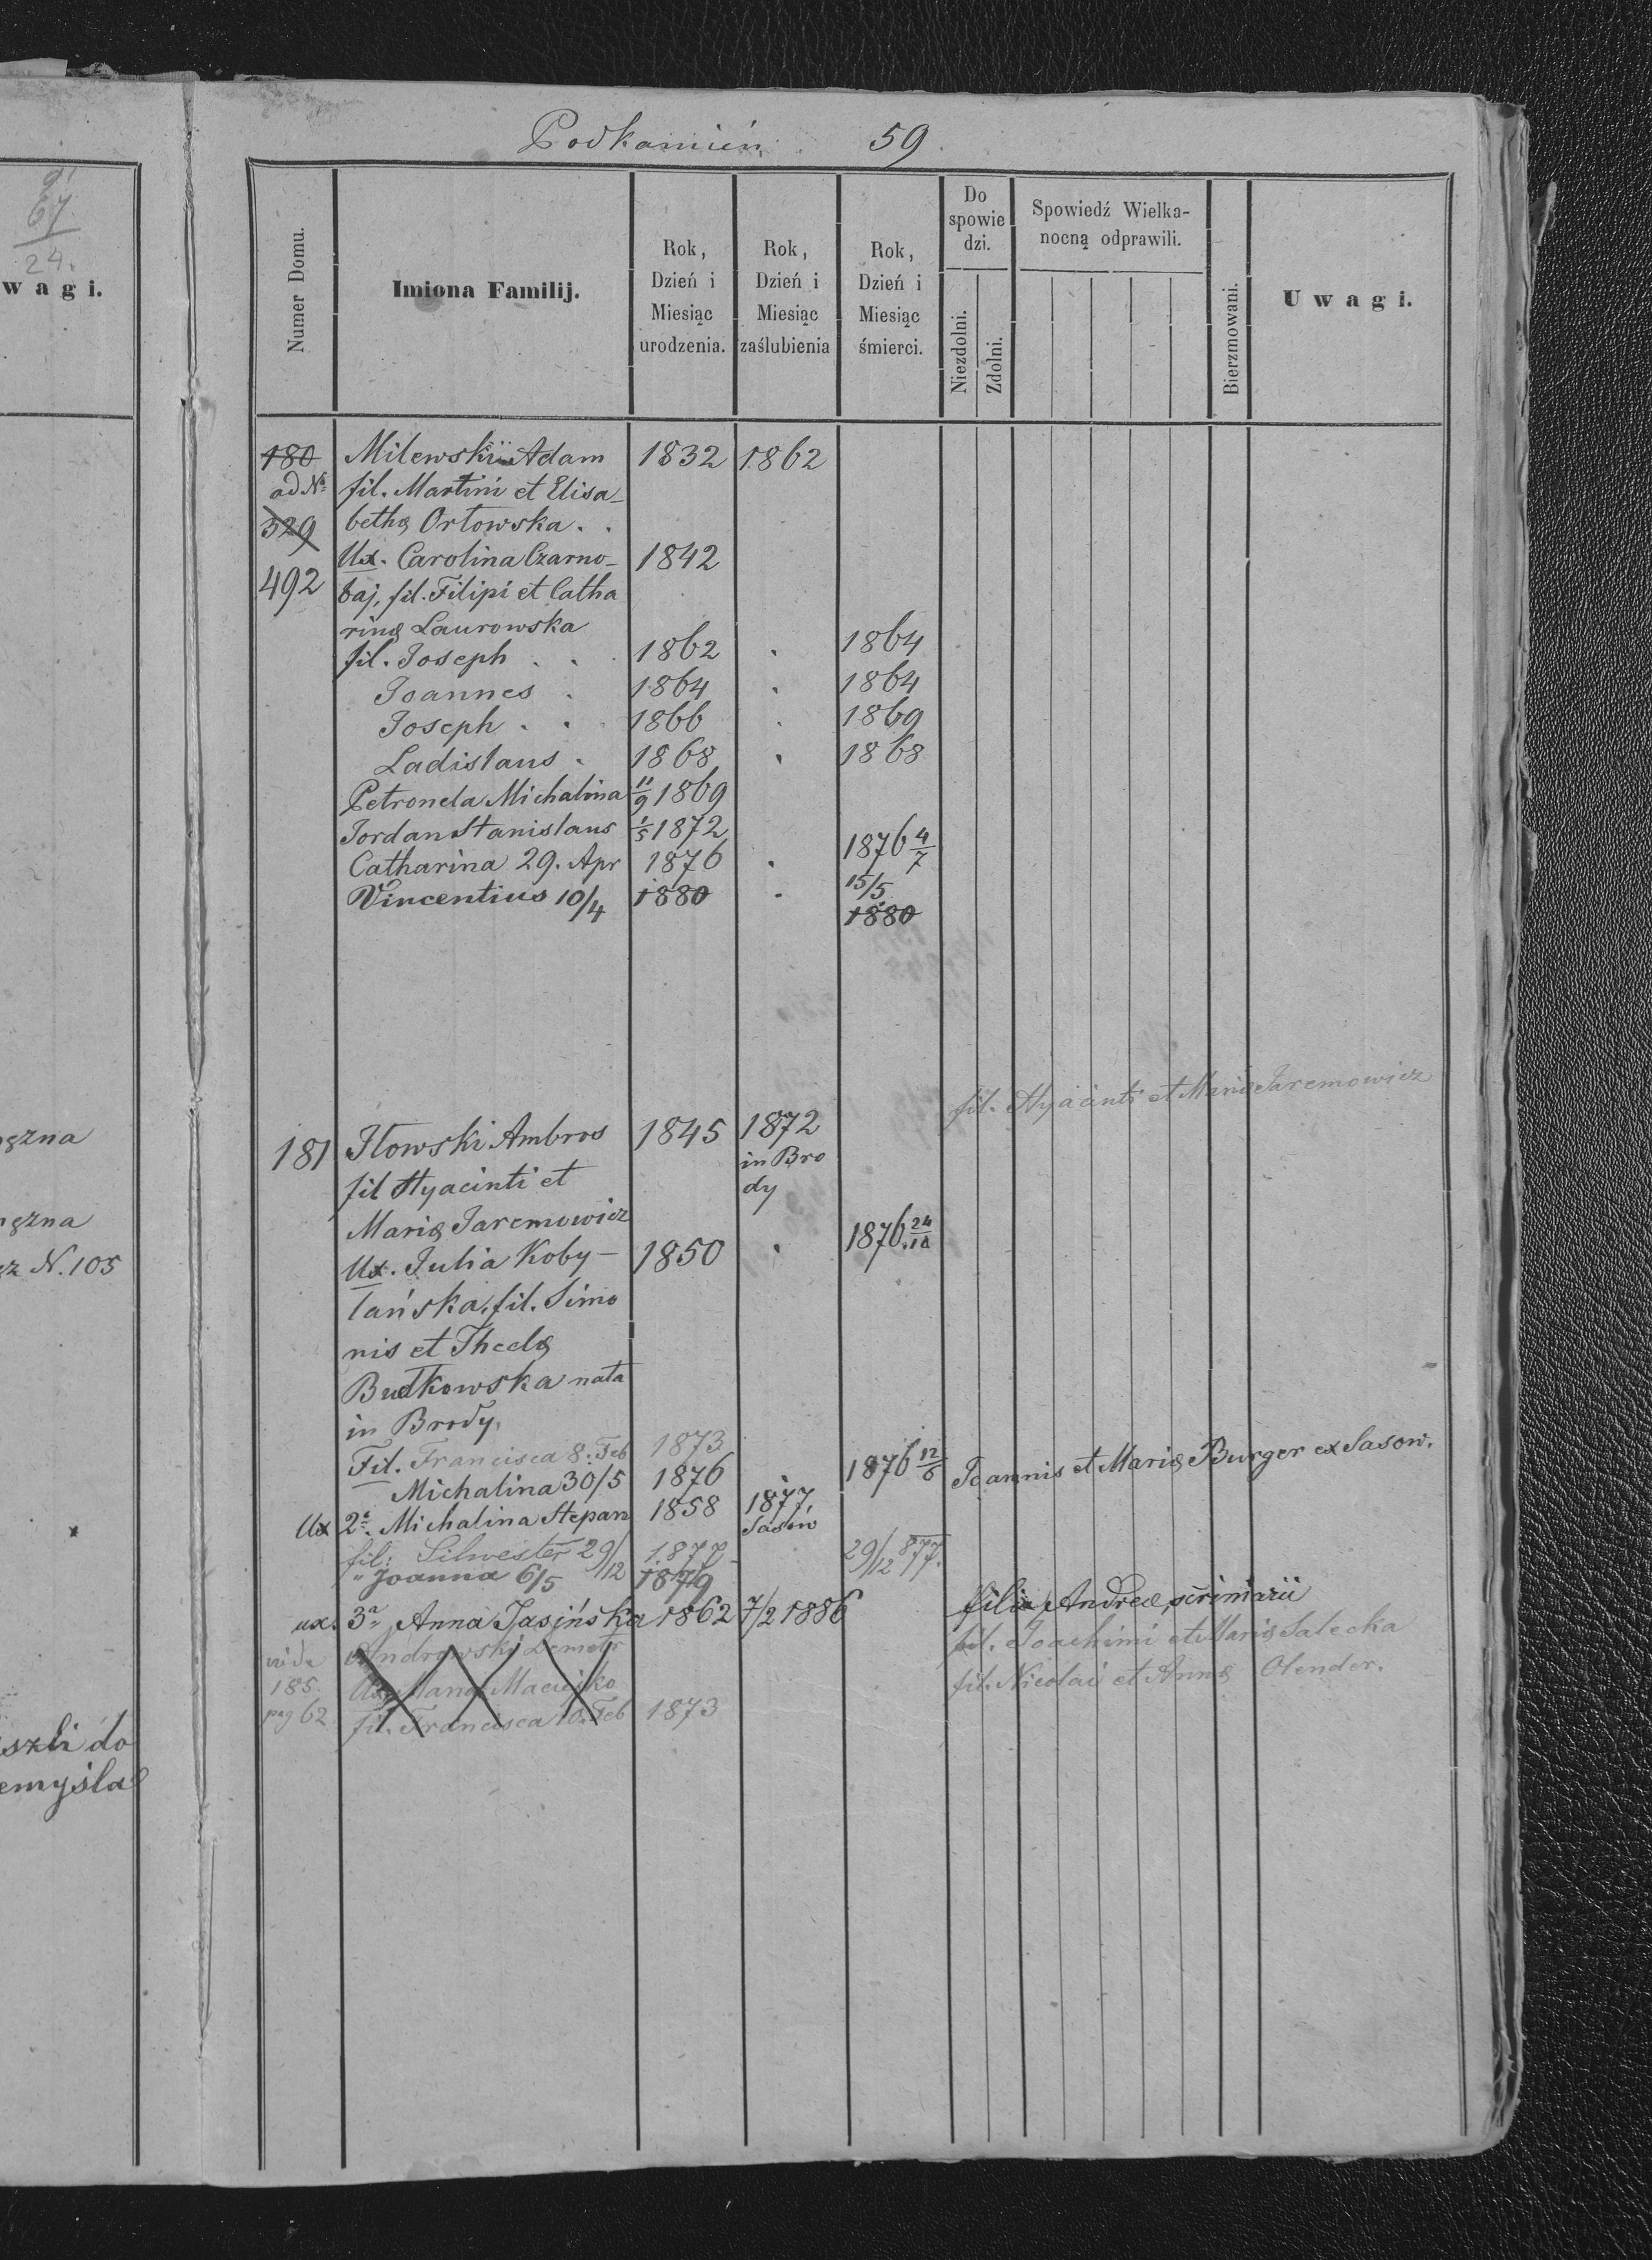 Podkamień. 59.
67
24.
w a g i.
Numer Domu.
Imiona Familij.
Rok, Dzień i Miesiąc urodzenia.
Rok, Dzień i Miesiąc zaślubienia
Rok, Dzień i Miesiąc śmierci.
Do spowiedzi.
Niezdolni.
Zdolni.
Spowiedź Wielkanocną odprawili.
Bierzmowani.
U w a g i.
180 Milewski Adam 1832 1862
ad No fil. Martini et Elisa-
329 bethæ Orłowska . .
Ux. Carolina Czarno- 1842
492 baj, fil. Filipi et Catha
rinæ Laurowska
fil. Joseph . . 1862 . 1864
Joannes . 1864 . 1864
Joseph . . 1866 . 1869
Ladislaus . 1868 . 1868
Petronela Michalina 11/9 1869
Jordan Stanislaus 1/5 1872
Catharina 29. Apr 1876 . 1876 4/7
Vincentius 10/4 1880 . 15/5 1880
fil. Hyacinti et Mariæ Jaremowicz
181 Iłowski Ambros 1845 1872
fil Hyacinti et in Bro
dy
Mariæ Jaremowicz
Ux. Julia Koby- 1850 . 1876 24/10
lańska, fil. Simo
nis et Theclæ
Budkowska nata
in Brody.
Fil. Francisca 8. Feb 1873
Michalina 30/5 1876 . 1876 12/6 Joannis et Mariæ Burger ex Sasow.
Ux 2a. Michalina Stepan 1858 1877, Sasów
fil: Silwester 29/12 1877 29/12 877.
" Joanna 6/5 1879
ux. 3a Anna Jasińska 1862 7/2 1886 filia Andreæ, scriniarii
vide Androwski Demetr fil. Joachimi et Mariæ Salecka
185. Ux. Maria Maciejko fil. Nicolai et Annæ Olender.
pag 62 fil. Francisca 10. Feb 1873
ężna
ężna
cz N. 105
szli do
emyśla